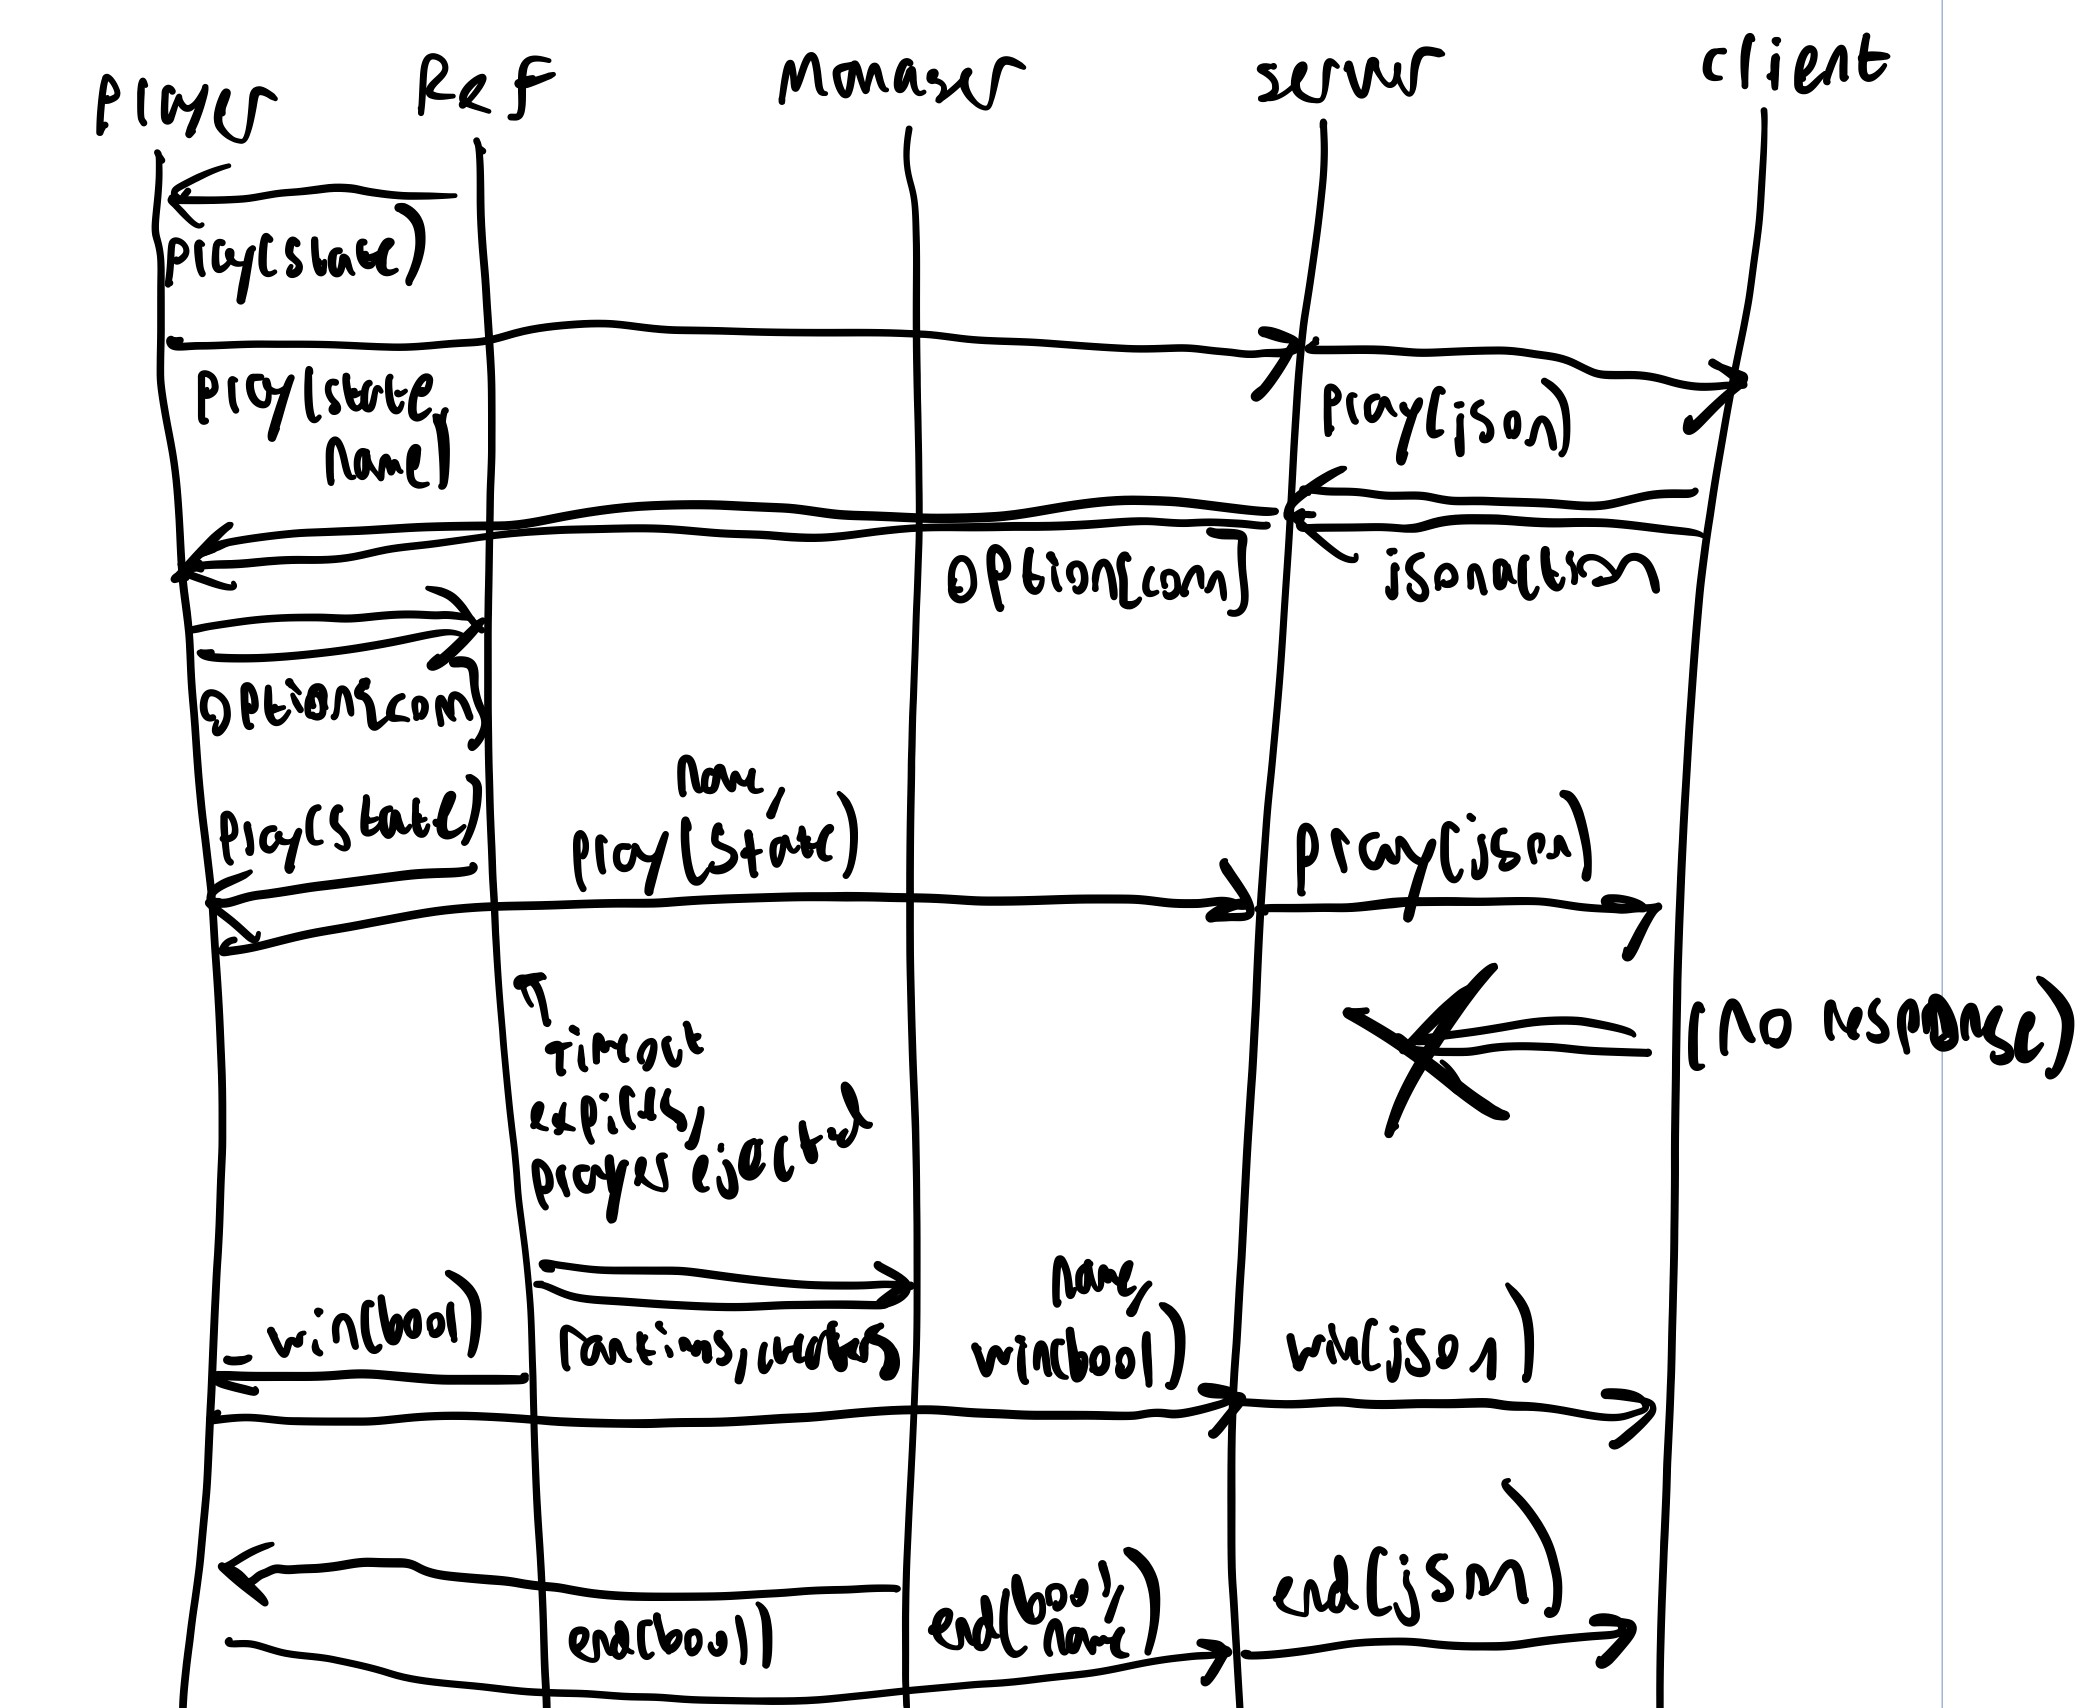 Player Ref Manager server client
play(state)
play(state,
name)
play(json)
option[con]
jsonaction
option[con]
play(state)
name,
play(state)
play(json)
(no response)
Timeout
expires,
player ejected
win(bool)
name,
win(bool)
win(json)
end(bool)
end(bool,
name)
end(json)